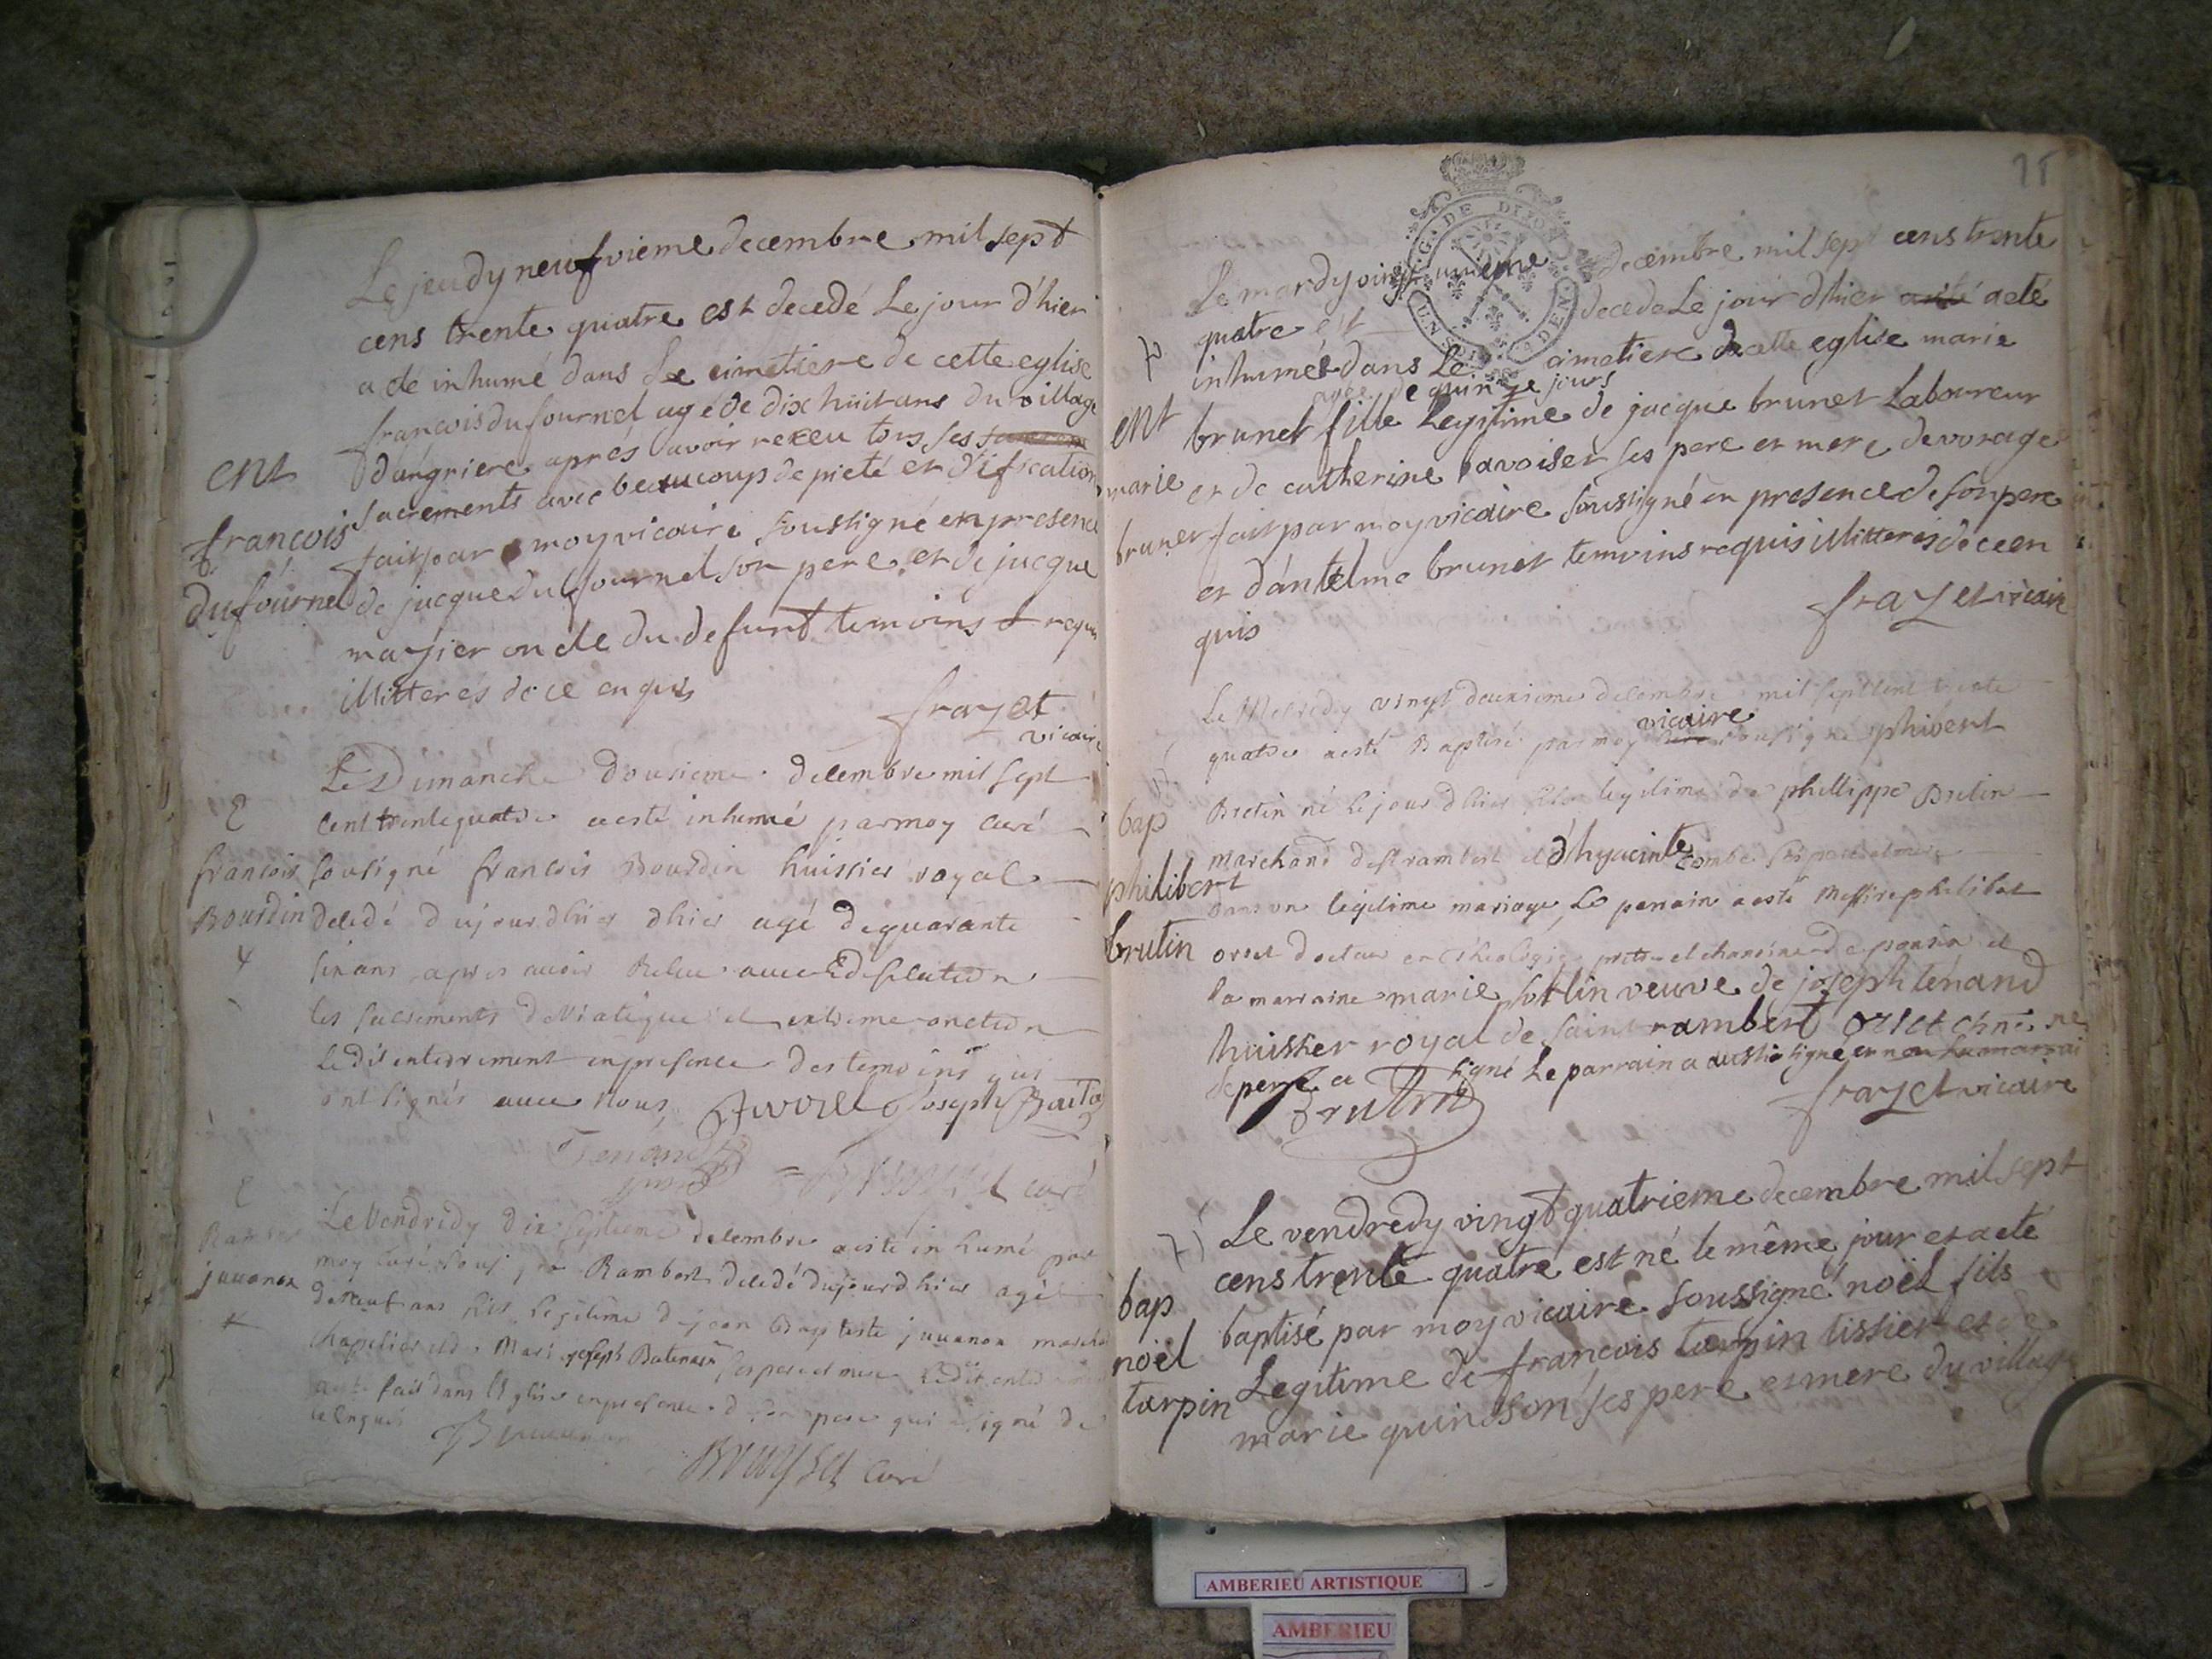 Le jeudy neufvieme decembre mil sept
cens trente quatre est decedé Le jour d'hier
a eté inhumé dans Le cimetiere de cette eglise
francois dufournel agé de dix huit ans du village
d'angriere aprés avoir receu tous ses
sacrements avec beaucoup de pieté et d'ification
fait par moy vicaire soussigné en presence
de jacque dufournel son pere et de jacque
mazier oncle du defunt temoins requis
illitterés de ce enquis
frazet
vicaire
ent
francois
dufournel
Le Dimanche douzieme decembre mil sept
cent trente quatre a esté inhumé par moy curé
sousigné francois Bourdin huissier royal
decedé dujourdhier dhier agé de quarante
six ans apres avoir Receu avec Edification
les sacrements de Viatique et extreme onction
Ledit enterrement en presence des temoins qui
ont signés avec Nous joseph
Tenand
curé
francois
Bourdin
Le Vendredy dix septieme decembre a esté inhumé par
moy curé sous Rambert decedé dujourdhier agé
de neuf ans fils legitime de jean Baptiste juuanon
chapelier et de Mari joseph ses pere et mere Ledit
a esté fait dans l'Eglise en presence de son pere qui a signé de
ce enquis
Bruyset curé
Rambert
juuanon
25
G. DE DIJON
UN SOL
Le mardy vingt unieme decembre mil sept cens trente
quatre est decedé Le jour d'hier a eté
inhumée dans Le cimetiere de cette eglise marie
agée de quinze jours
brunet fille Legitime de jacque brunet Laboureur
et de catherine savoiset ses pere et mere de vorage
fait par moy vicaire soussigné en presence de son pere
et d'antelme brunet temoins requis illitterés de ce en
quis
frazet vicaire
ent
marie
brunet
Le Mecredy vingt deuxieme decembre mil sept cent trente
quatre a esté Baptisé par moy vicaire sousigné phibert
Bretin né le jour dhier fils legitime de phillippe Brutin
marchand de st rambert et d'hyacinte combe ses pere et mere
dans un legitime mariage, Le parrain a esté Messire philibert
orset docteur en theologie, pretre et chanoine de
la marraine marie sottin veuve de joseph ténand
huissier royal de saint rambert orset chne. ne
le pere a signé Le parrain a aussi signé et non la marrai
Brutin
frazet vicaire
bap
philibert
brutin
Le vendredy vingt quatrieme decembre mil sept
cens trente quatre est né le même jour et a eté
baptisé par moy vicaire soussigné noël fils
Legitime de francois tarpin tissier et de
marie quinson ses pere et mere du village
bap
noël
tarpin
AMBERIEU ARTISTIQUE
AMBERIEU